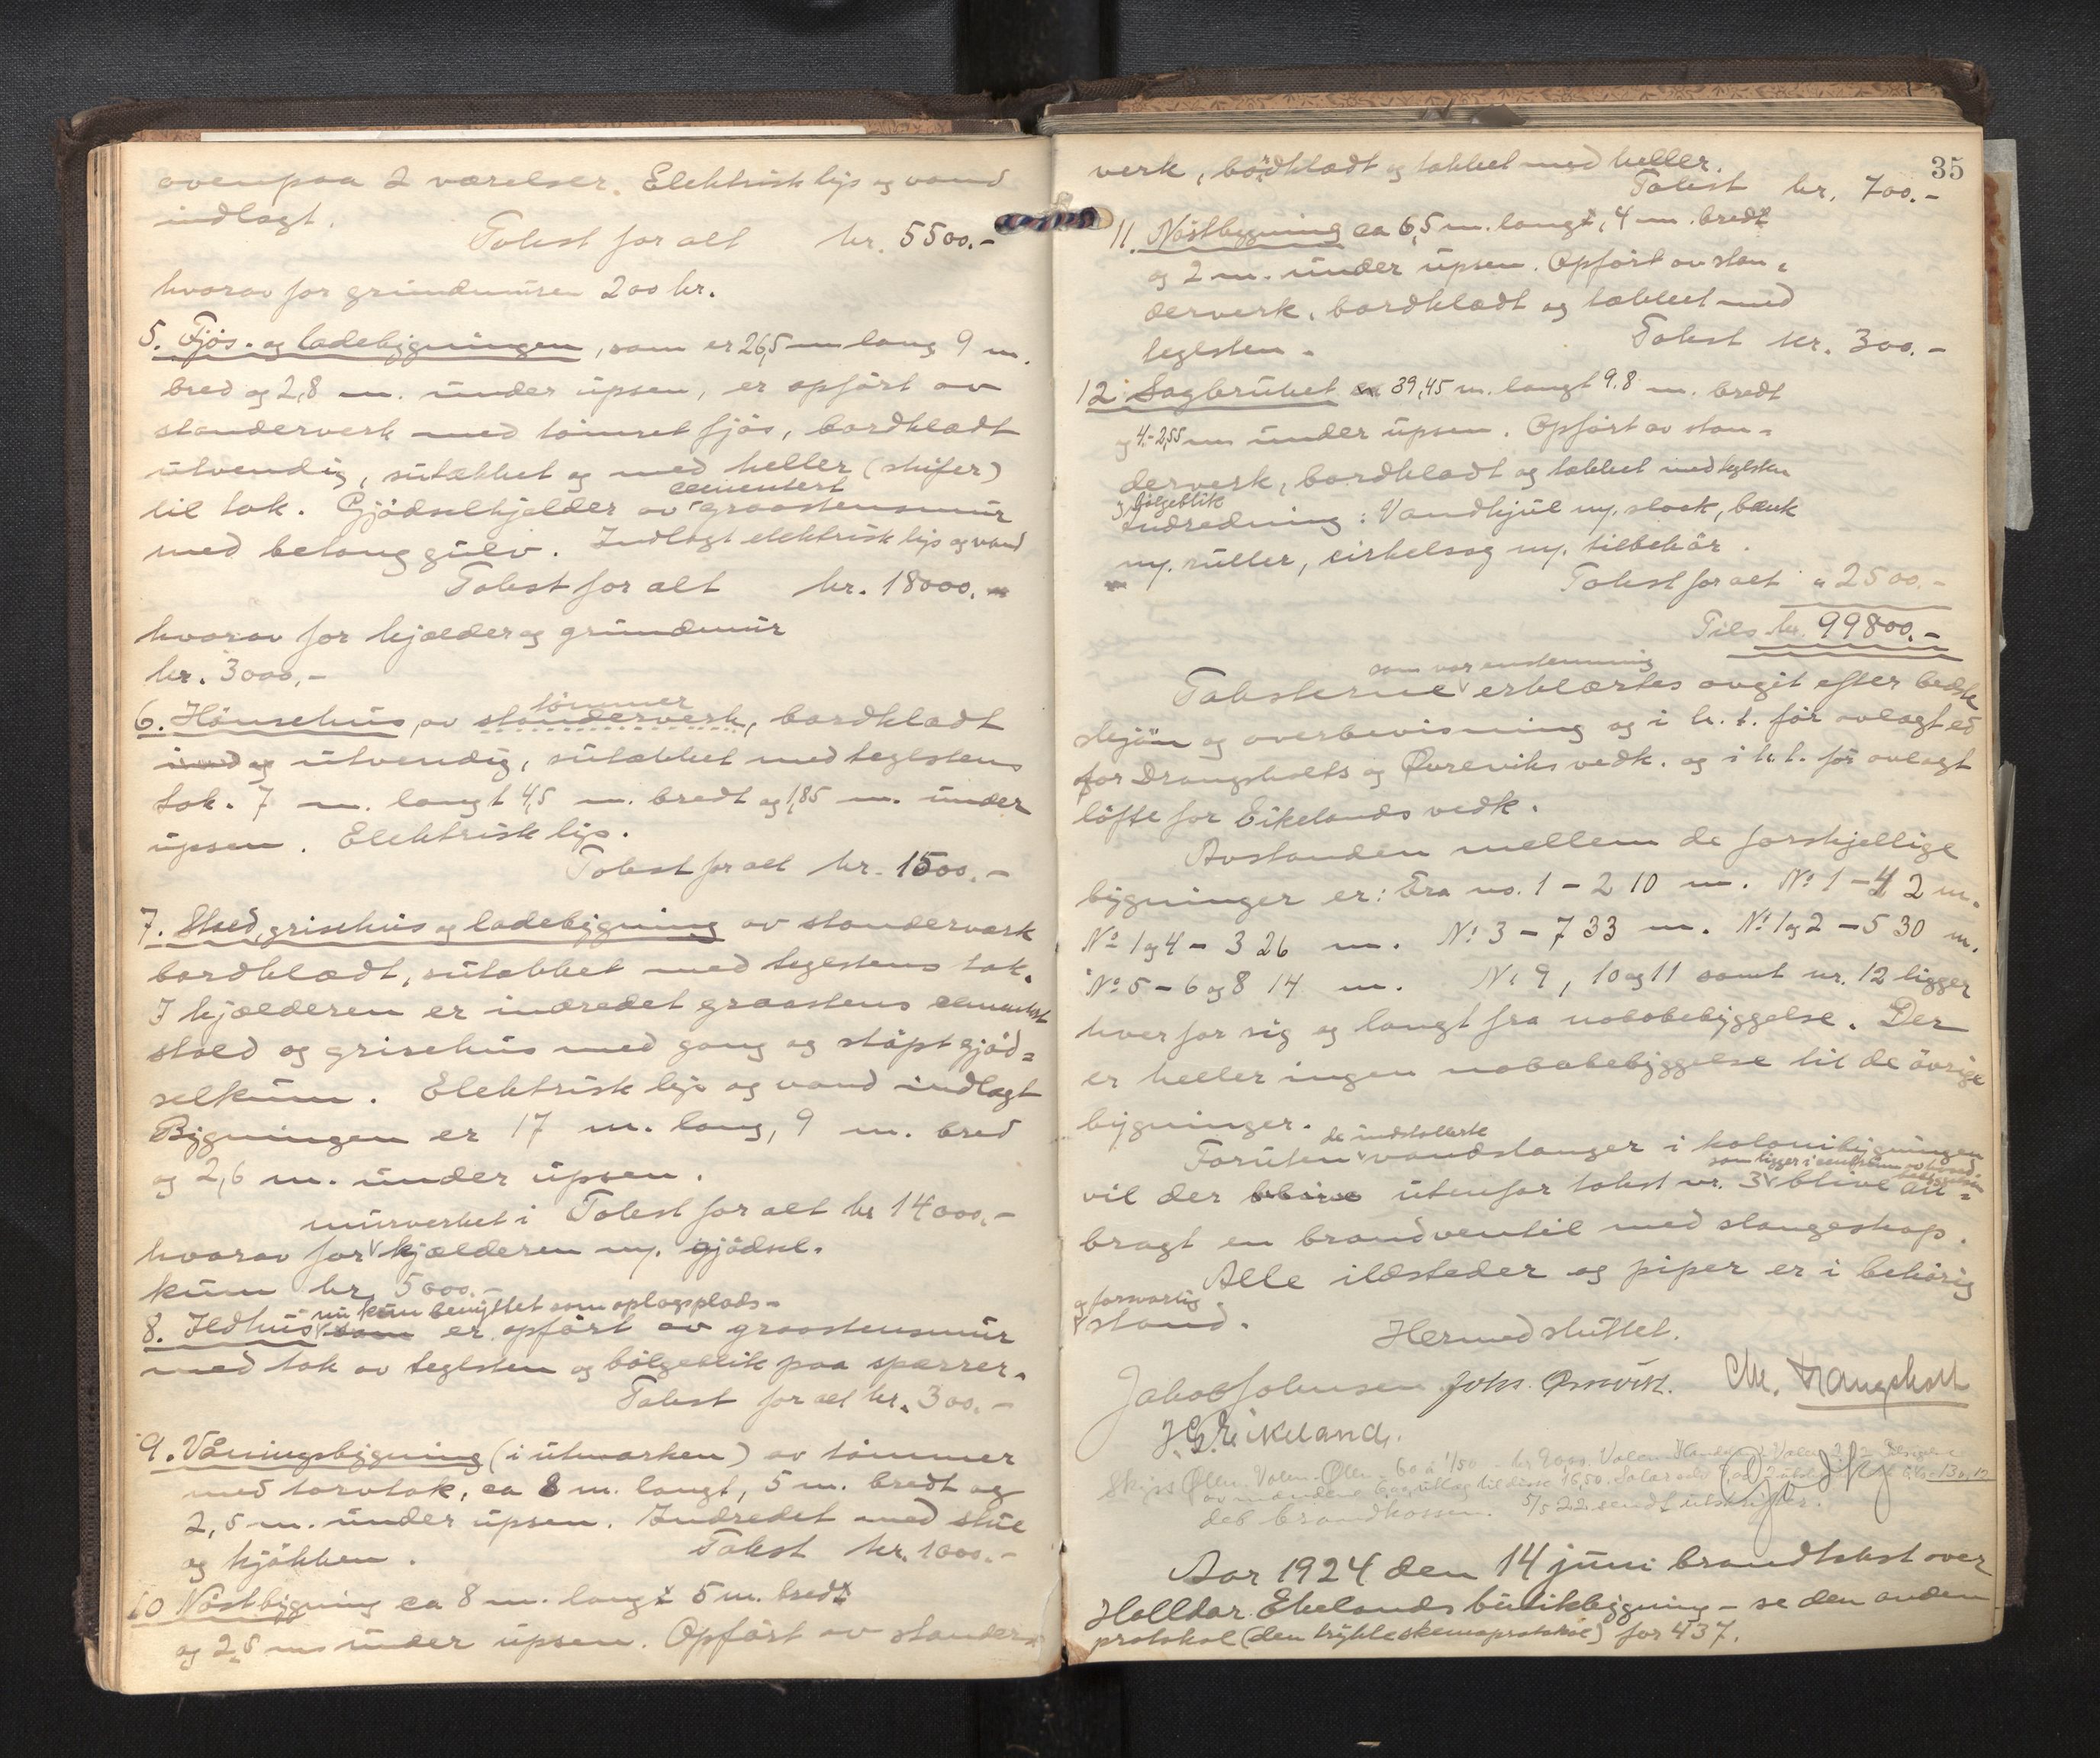 ovenpaa 2 værelser. Elektrisk lys og vand
indlagt.
Takst for alt kr. 5500.-
hvorav for grundmuren 200 kr.
5. Fjøs- og ladebygningen, som er 26,5 m lang 9 m.
bred og 2,8 m. under upsen, er opført av
standerverk med tømret fjøs, bordklædt
utvendig, sutækket og med heller (skifer)
cementert
til tak. Gjødselkjelder av graastensmur
med betong gulv. Indlagt elektrisk lys og vand
Takst for alt kr. 18000.-
hvorav for kjælder og grundmur
kr. 3000,-
tømmer
6. Hönsehus, av standerverk, bordklædt
ind og utvendig, sutækket med teglstens
tak. 7 m. langt 4,5 m. bredt og 1,85 m. under
upsen. Elektrisk lys.
Takst for alt kr. 1500.-
7. Sted, grisehus og ladebygning av standerverk
bordklædt, sutækket med teglstens tak.
I kjælderen er indredet graastens cementert
stald og grisehus med gang og støpt gjød=
selkum. Elektrisk lys og vand indlagt
Bygningen er 17 m. lang, 9 m. bred
og 2,6 m. under upsen.
Takst for alt kr 14000.-
murverket i
hvorav for kjælderen m. gjødsel-
kum kr. 5000.-
nu kun benyttet som oplagsplads-
8. Ildhus som er opført av graastensmur
med tak av teglsten og bølgeblik paa sperrer.
Takst for alt kr. 300.-
9. Våningsbygning (i utmarken) av tømmer
med torvtak, ca 8 m. langt, 5 m. bredt og
2,5 m. under upsen. Indredet med stue
og kjøkken. Takst kr. 1000.-
10 Nøstbygning ca 8 m. langt 5 m. bredt
og 2,5 m under upsen. Opført av stander-
35
verk, bordklædt og tækket med heller.
Takst kr. 700.-
11. Nøstbygning ca 6,5 m. langt, 4 m. bredt
og 2 m. under upsen. Opført av stan=
derverk, bordklædt og tækket med
teglsten. Takst kr. 300.-
12. Sagbruket ca 39,45 m. langt 9.8 m. bredt
og 4.-2,55 m under upsen. Opført av stan=
derverk, bordklædt og tækket med teglsten
og bølgeblik
Indredning: Vandhjul m. stok, bænk
m. ruller, cirkelsag m. tilbehør.
Takst for alt " 2500.-
Tils. kr. 99800.-
som var enstemmig
Taksterne erklærtes avgit efter bedste
skjøn og overbevisning og i h. t. før avlagt ed
for Drangsholts og Øvreviks vedk. og i h. t. før avlagt
løfte for Eikelands vedk.
Avstanden mellem de forskjellige
bygninger er: Fra no. 1 - 2 10 m. No 1 - 4 2 m.
No 1 og 4 - 3 26 m. No 3 - 7 33 m. No 1 og 2 - 5 30 m.
No 5 - 6 og 8 14 m. No 9, 10 og 11 samt nr. 12 ligger
hver for sig og langt fra nabobebyggelse. Der
er heller ingen nabobebyggelse til de øvrige
bygninger.
de indstallerte
Foruten vandslanger i kolonibygningen
som ligger i centrum av hoved-
bebyggelsen
vil der blive utenfor takst nr. 3 blive an=
bragt en brandventil med slangeskap.
Alle ildsteder og piper er i behørig
og forsvarlig
stand.
Hermed sluttet.
Jakob Johnsen Johs. Øvrevik. Chr. Drangsholt
J. G. Eikeland.
Skyss Ølen
deb brandkassen. 5/5 22 sendt utskrifter.
Aar 1924 den 14 juni brandtakst over
Halldor Ekelands butikbygning - se den anden
protokol (den trykte skemaprotokol) for 437.